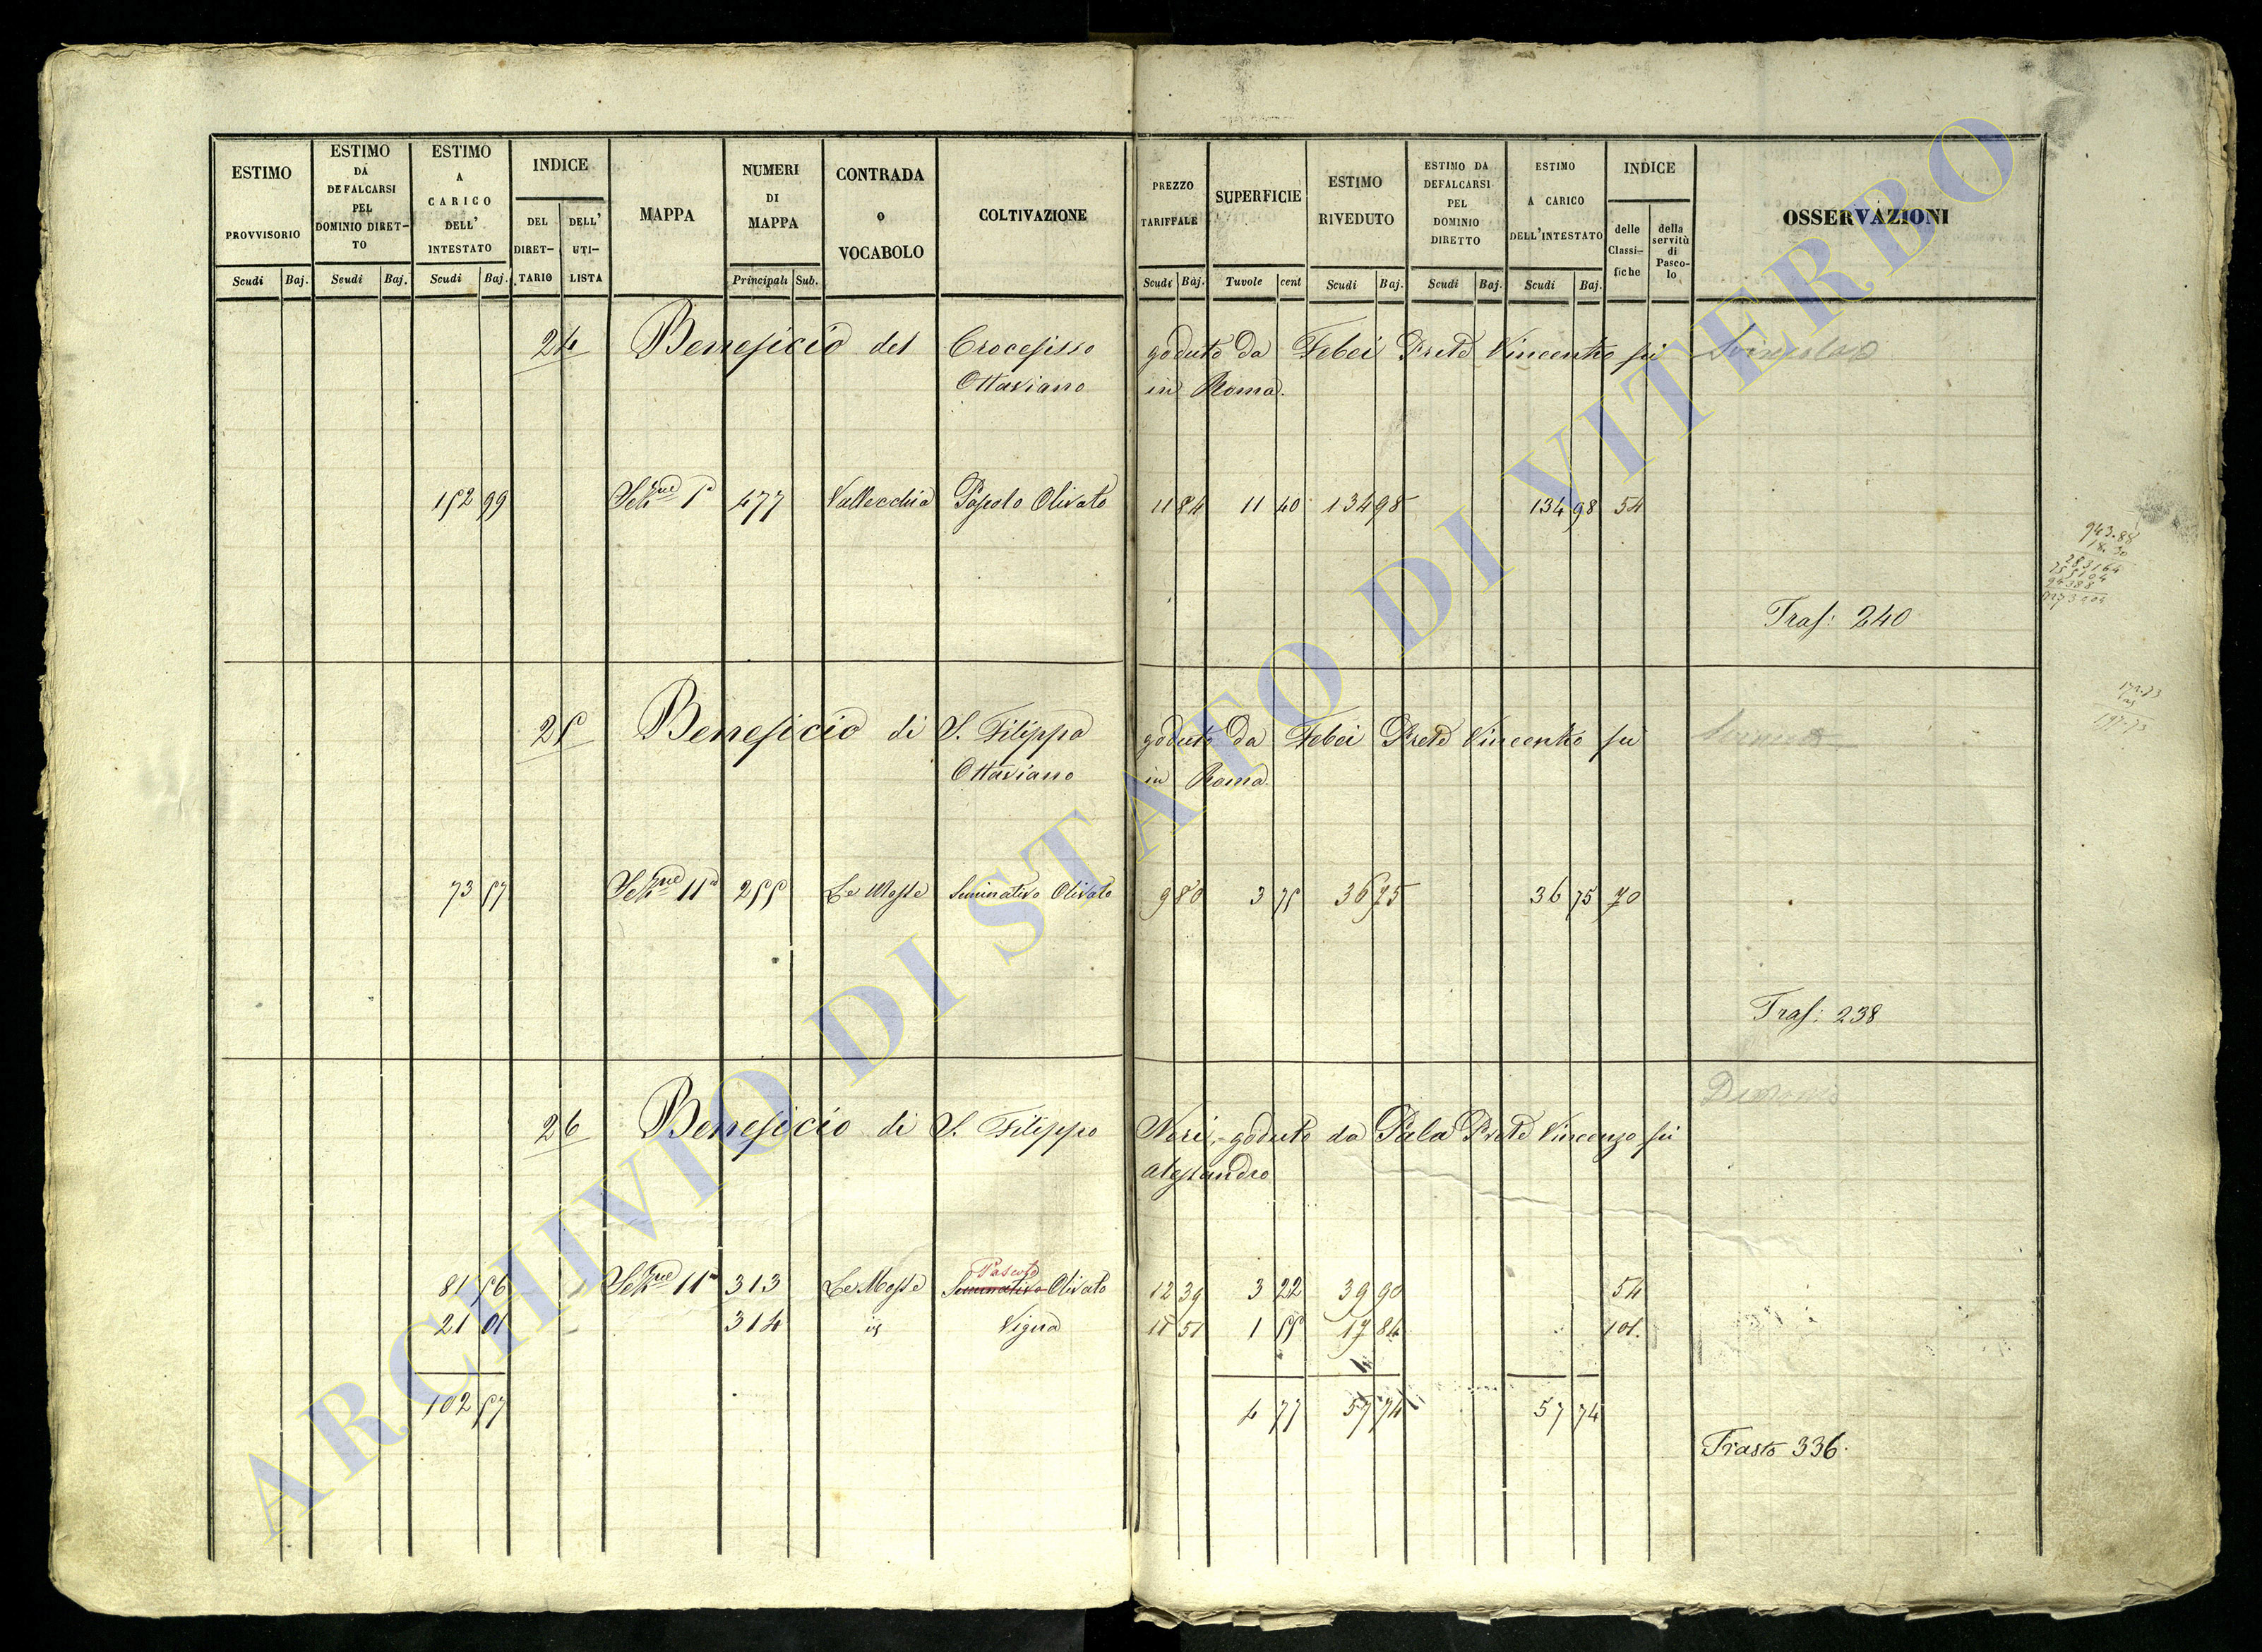 ESTIMO PROVVISORIO Scudi Baj.
ESTIMO DA DEFALCARSI PEL DOMINIO DIRET-TO Scudi Baj.
ESTIMO A CARICO DELL' INTESTATO Scudi Baj.
INDICE DEL DIRET-TARIO DELL' UTI-LISTA
MAPPA
NUMERI DI MAPPA Principali Sub.
CONTRADA o VOCABOLO
COLTIVAZIONE
PREZZO TARIFFALE Scudi Baj.
SUPERFICIE Tavole cent
ESTIMO RIVEDUTO Scudi Baj.
ESTIMO DA DEFALCARSI PEL DOMINIO DIRETTO Scudi Baj.
ESTIMO A CARICO DELL'INTESTATO Scudi Baj.
INDICE delle Classi-fiche della servitù di Pasco-lo
OSSERVAZIONI
24 Beneficio del Crocefisso goduto da Febei Prete Vincenzo fu
Ottaviano in Roma.
152 99 Sezne 1a 477 Vallecchia Pascolo Olivato 11 84 11 40 134 98 134 98 54
Tras: 240
25 Beneficio di S. Filippo goduto da Febei Prete Vincenzo fu
Ottaviano in Roma.
73 57 Sezne 11a 255 Le Mosse Seminativo Olivato 9 80 3 75 36 75 36 75 70
Tras: 238
26 Beneficio di S. Filippo Neri, goduto da Pala Prete Vincenzo fu
Alessandro
Pascolo
81 56 Sezne 11a 313 Le Mosse Seminativo Olivato 12 39 3 22 39 90 54
21 01 314 id Vigna 11 51 1 55 17 84 101.
102 57 4 77 57 74 57 74
Trasto 336.
943.88
18.30
283164
755104
94388
172.73
197.73
ARCHIVIO DI STATO DI VITERBO